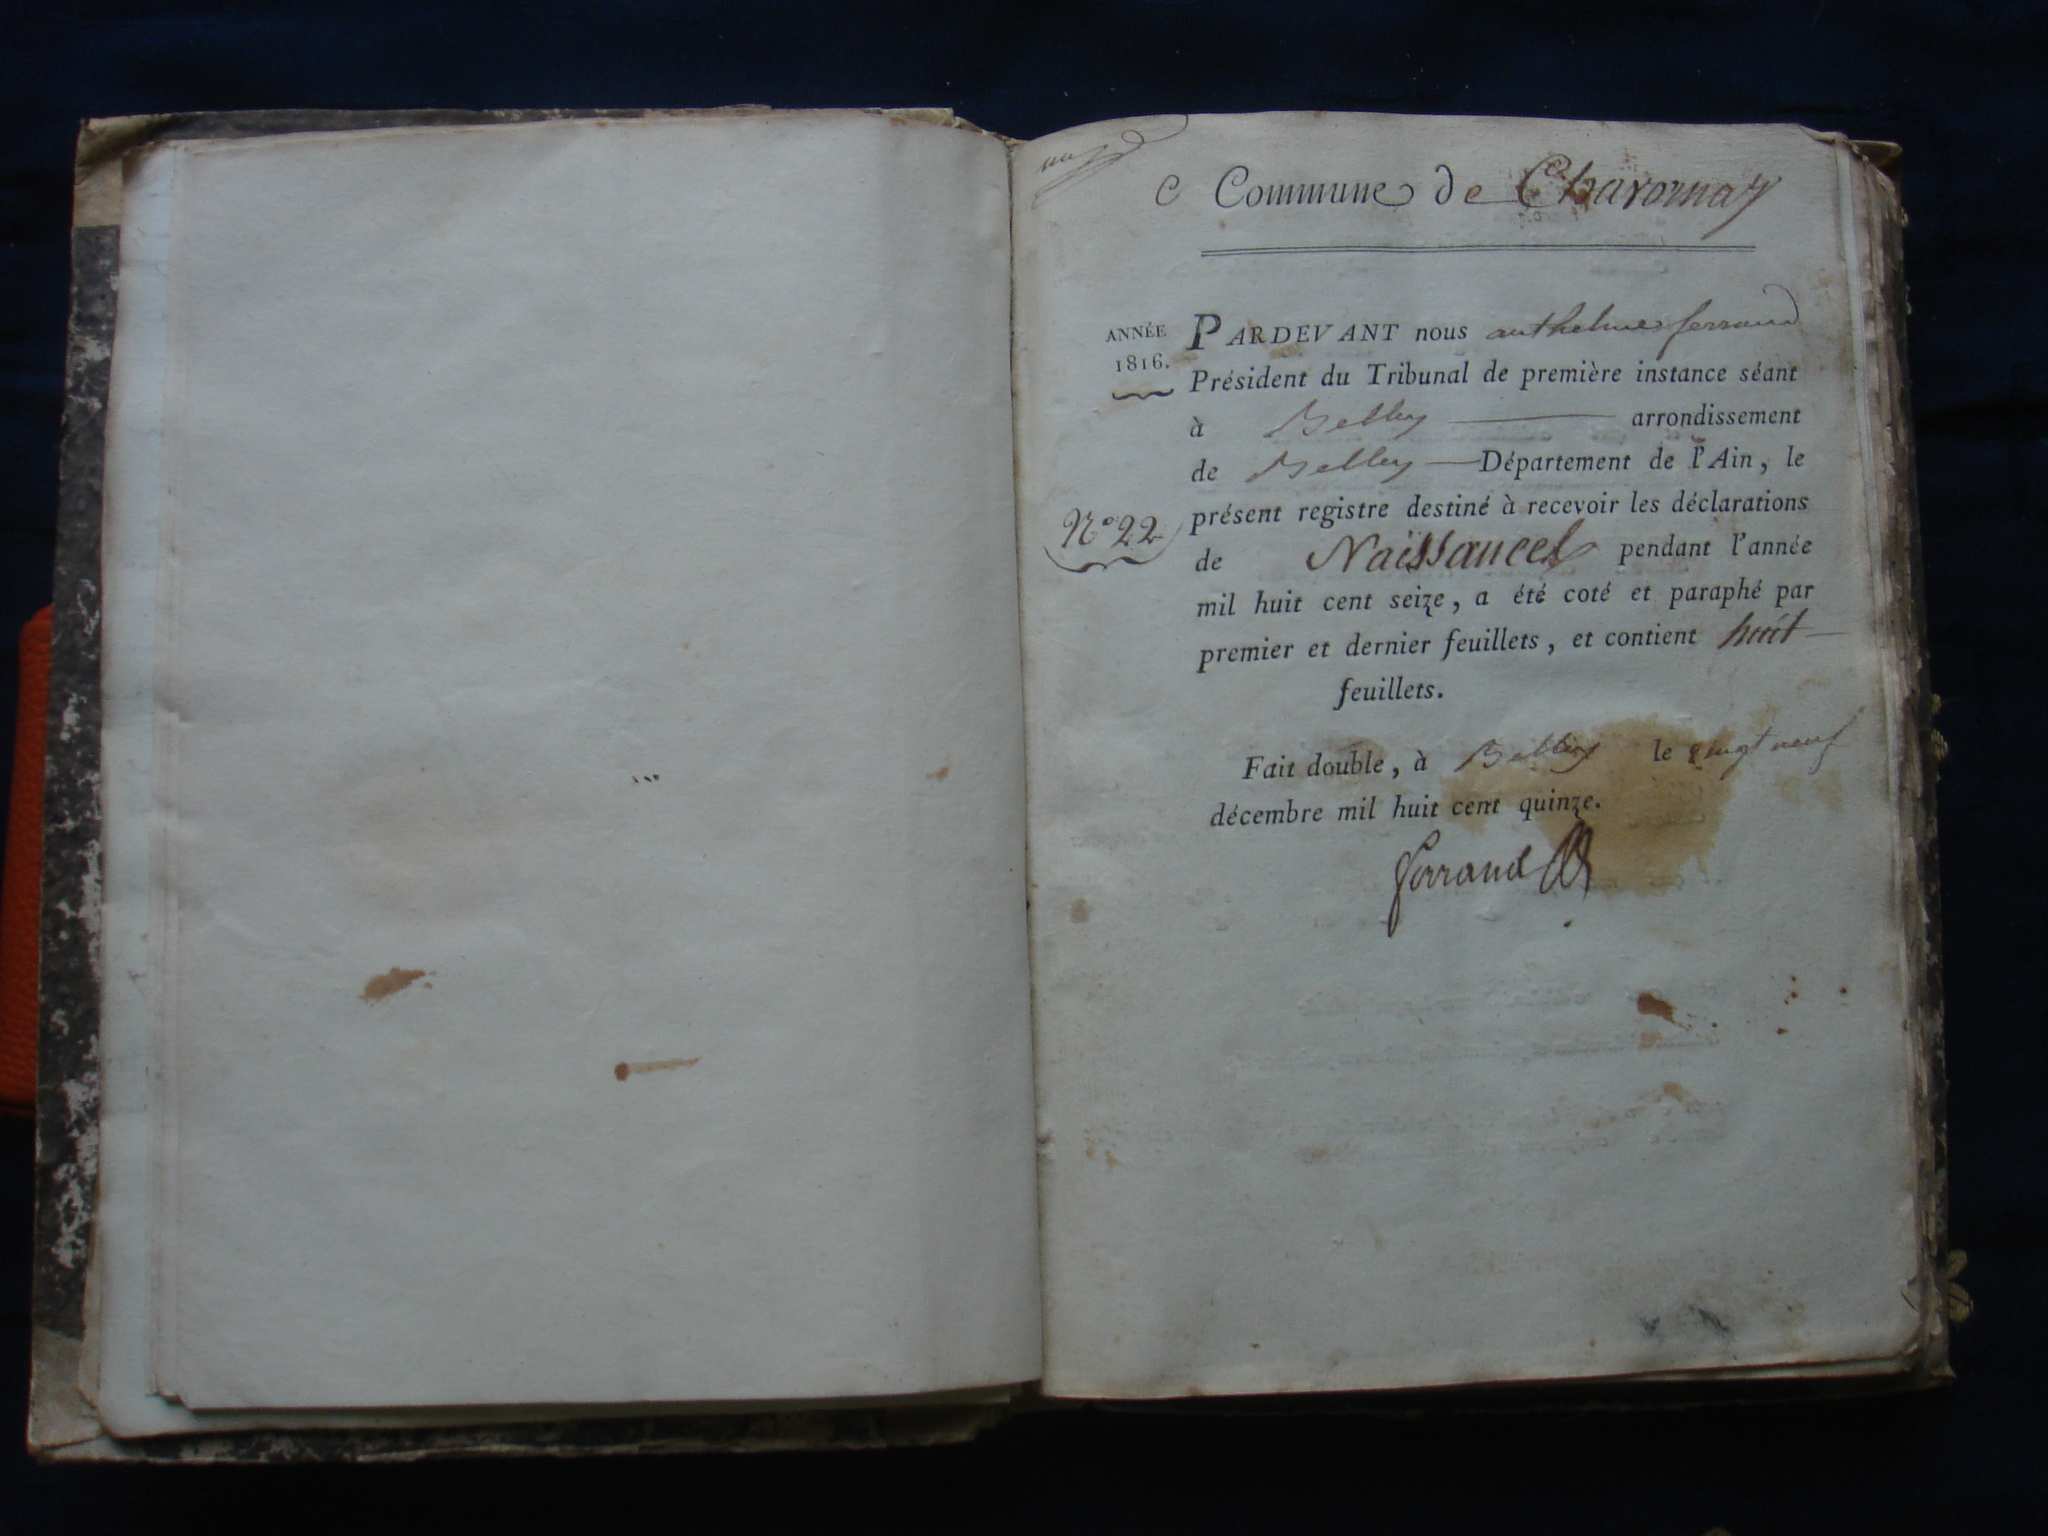 Commune de Chavornay
ANNÉE
1816.
PARDEVANT nous anthelme ferrand
Président du Tribunal de première instance séant
à Belley arrondissement
de Belley Département de l'Ain, le
N.º 22
présent registre destiné à recevoir les déclarations
de Naissances pendant l'année
mil huit cent seize, a été coté et paraphé par
premier et dernier feuillets, et contient huit
feuillets.
Fait double, à Belley le vingt neuf
décembre mil huit cent quinze.
ferrand